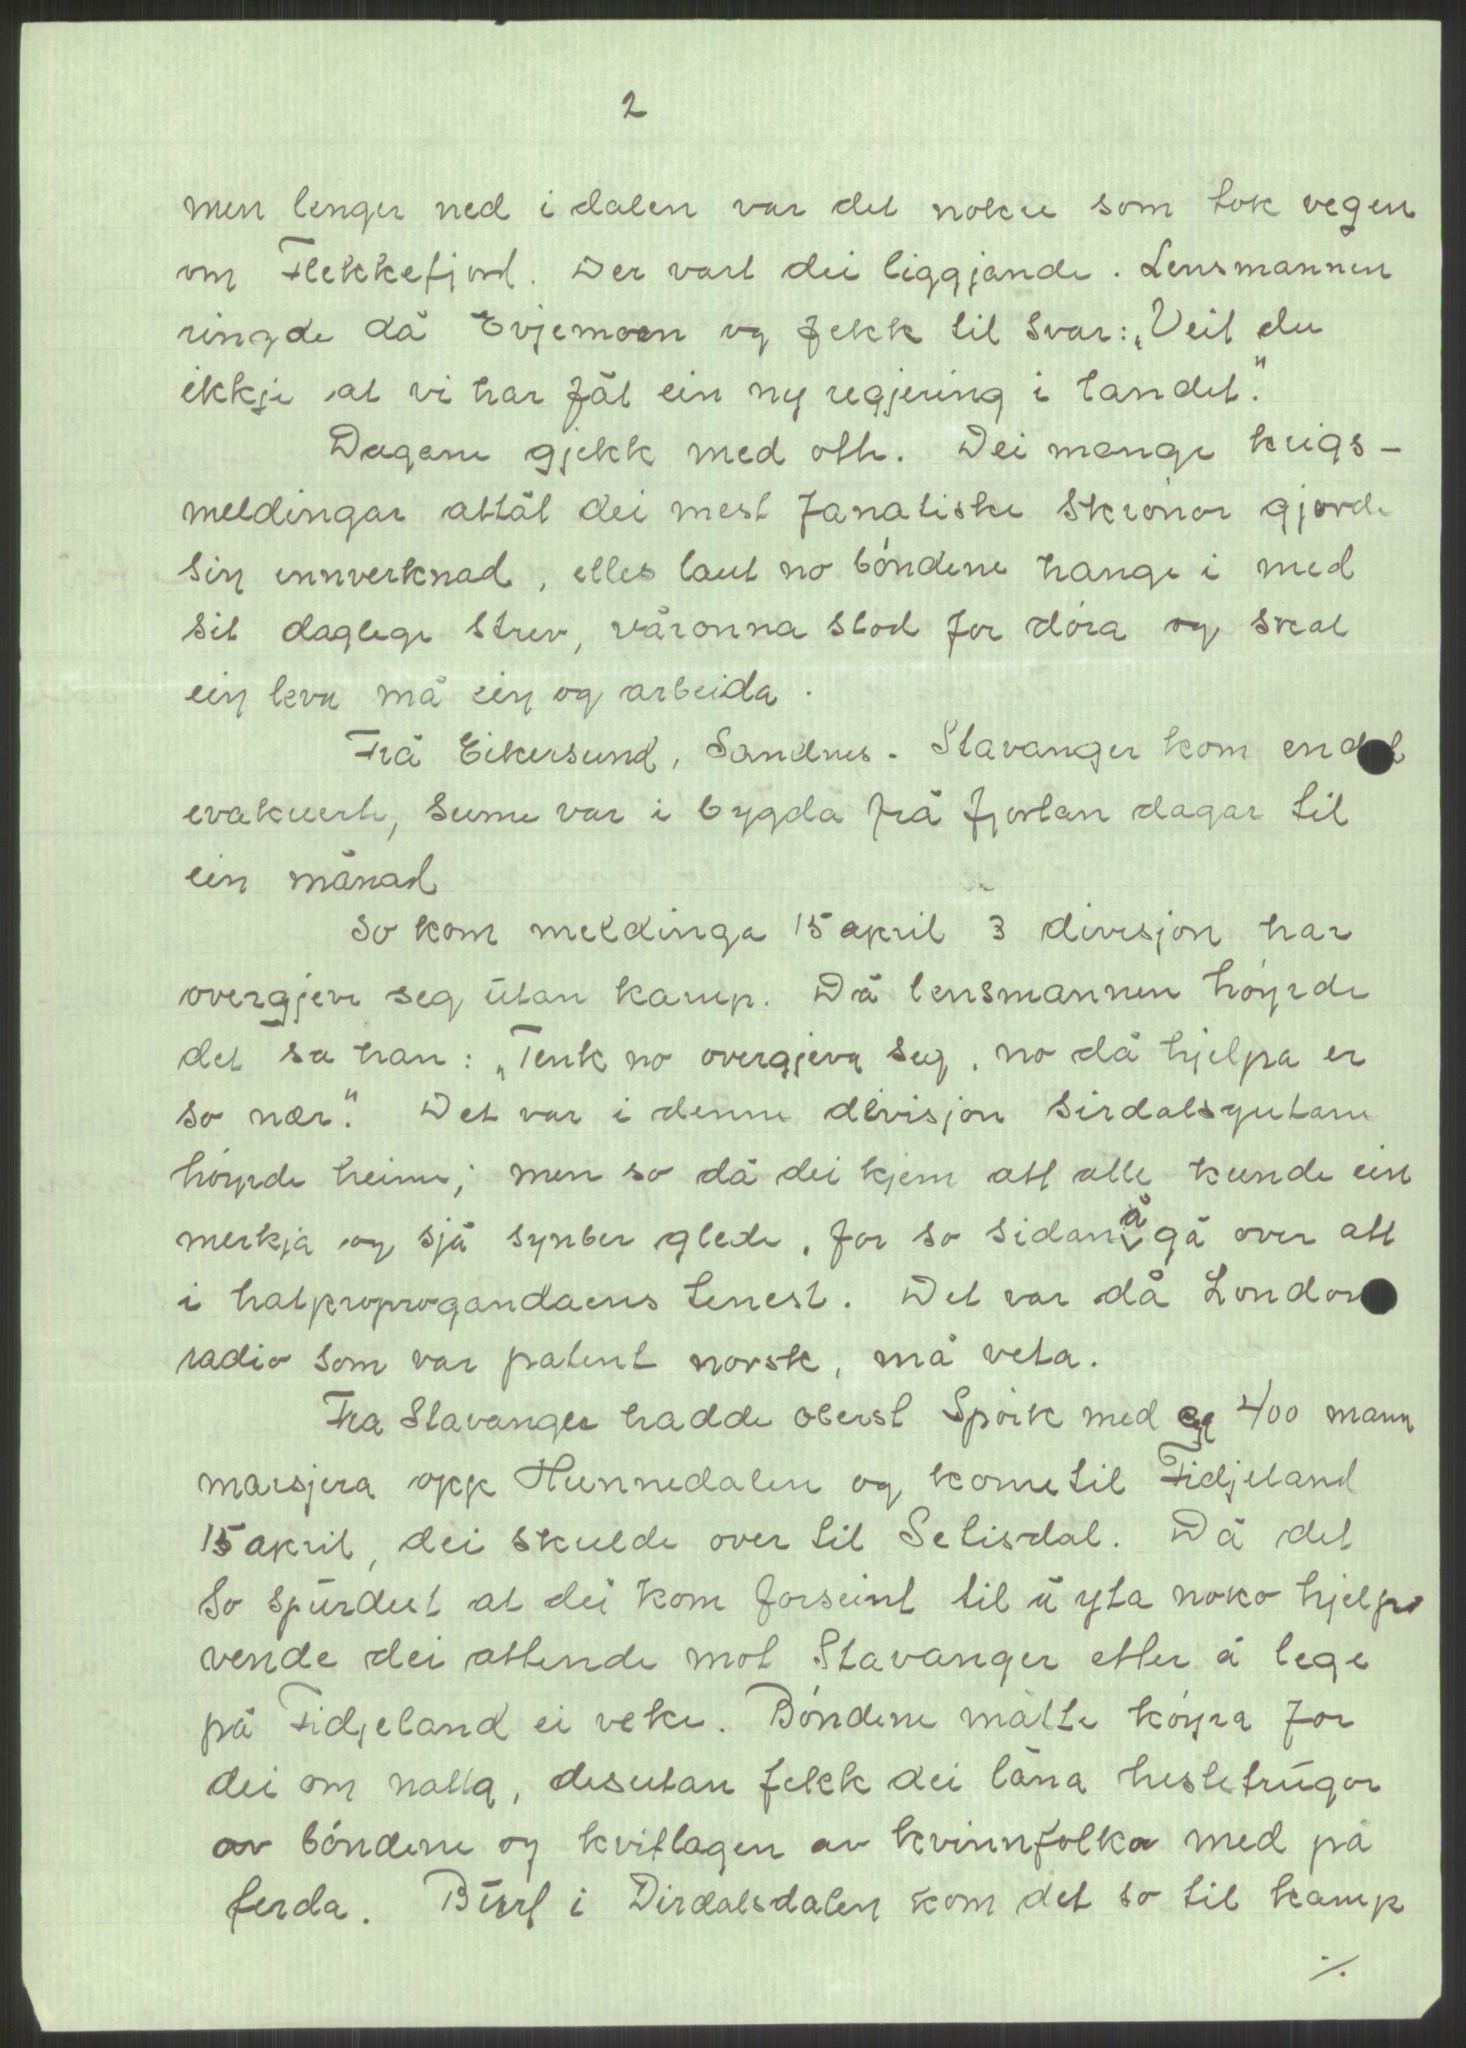 2
men lenger ned i dalen var det nokre som tok vegen
om Flekkefjord. Der vart dei liggjande. Lensmannen
ringde då Evjemoen og fekk til svar: „Veit du
ikkje at vi har fåt ein ny regjering i landet."
Dagane gjekk med otte. Dei mange krigs-
meldingar attåt dei mest fanatiske skrönor gjorde
sin innverknad, elles laut no böndene hange i med
sit daglege strev, våronna stod for döra og skal
ein leva må ein og arbeida.
Frå Eikersund, Sandnes - Stavanger kom endel
evakuerte, sume var i bygda frå fjortan dagar til
ein månad
So kom meldinga 15 april 3 divisjon har
overgjeve seg utan kamp. Då lensmannen höyrde
det sa han: „Tenk no overgjeva seg, no då hjelpa er
so nær." Det var i denne divisjon Sirdalsgutane
höyrde heime; men so då dei kjem att alle kunde ein
merkja og sjå synber glede, for so sidan å gå over att
i hatpropropgandaens tenest. Det var då London
radio som var patent norsk, må veta.
Fra Stavanger hadde oberst Spörk med 400 mann
marsjera opp Hunnedalen og kome til Fidjeland
15 april, dei skulde over til Setisdal. Då det
so spurdest at dei kom forseint til å yta noko hjelp
vende dei attende mot Stavanger etter å lege
på Fidjeland ei veke. Böndene måtte köyra for
dei om natta, desutan fekk dei låna hestetrugor
av böndene og kvitlagen av kvinnfolka med på
ferda. Burt i Dirdalsdalen kom det so til kamp
./.